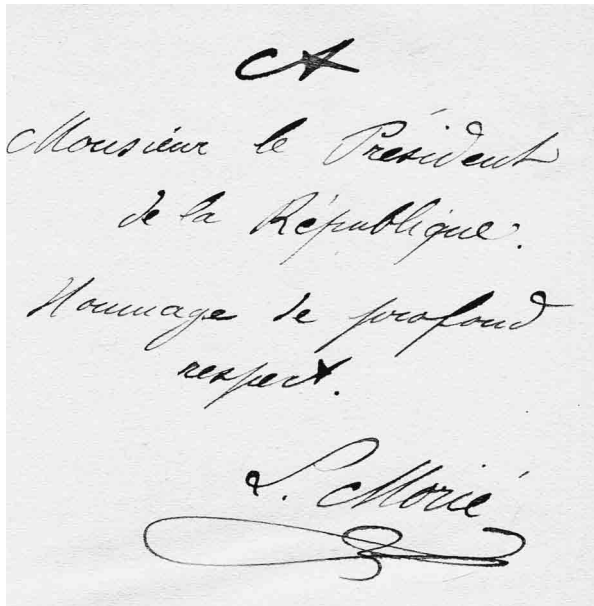 A
Monsieur le Président
de la République.
Hommage de profond
respect.
L. Morié